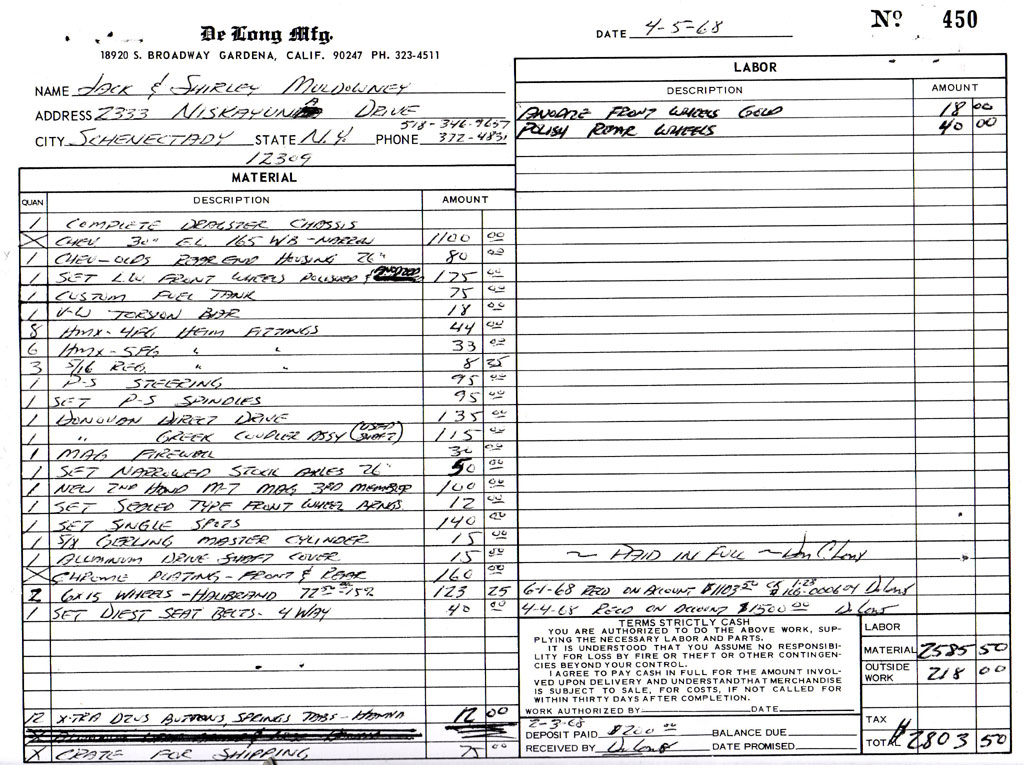 De Long Mfg.
18920 S. BROADWAY GARDENA, CALIF. 90247 PH. 323-4511
DATE 4-5-68
No 450
NAME JACK & SHIRLEY MULDOWNEY
ADDRESS 2333 NISKAYUNA DRIVE
518-346-9657
CITY SCHENECTADY STATE N.Y. PHONE 372-4831
12309
MATERIAL
QUAN DESCRIPTION AMOUNT
1 COMPLETE DRAGSTER CHASSIS
X CHEV 30" E.L. 165 WB-NARROW 1100 00
1 CHEV-OLDS REAR END HOUSING 26" 80 00
1 SET L.W. FRONT WHEELS POLISHED & 175 00
1 CUSTOM FUEL TANK 75 00
1 V-W TORSION BAR 18 00
8 HMX-4FG HEIM FITTINGS 44 00
6 HMX-5FG " " 33 00
3 5/16 REG. " " 8 35
1 P-S STEERING 95 00
1 SET P-S SPINDLES 95 00
1 DONOVAN DIRECT DRIVE 135 00
1 " GREEK COUPLER ASSY (USED SHAFT) 115 00
1 MAG FIREWALL 30 00
1 SET NARROWED STOCK AXLES 26" 50 00
1 NEW 2ND HAND M-T MAG 3RD MEMBER 100 00
1 SET SEALED TYPE FRONT WHEEL BRNGS 12 00
1 SET SINGLE SPOTS 140 00
1 5/8 GERLING MASTER CYLINDER 15 00
1 ALUMINUM DRIVE SHAFT COVER 15 00
X CHROME PLATING-FRONT & REAR 160 00
2 6X15 WHEELS-HALIBRAND 123 25
1 SET DIEST SEAT BELTS- 4 WAY 40 00
12 X-TRA DZUS BUTTONS SPRINGS TABS- 12 00
X CRATE FOR SHIPPING 25 00
LABOR
DESCRIPTION AMOUNT
ANODIZE FRONT WHEELS GOLD 18 00
POLISH REAR WHEELS 40 00
~ PAID IN FULL ~
6-1-68 RECD ON ACCOUNT $1103.50 CK
4-4-68 RECD ON ACCOUNT $1500.00 DeLong
TERMS STRICTLY CASH
YOU ARE AUTHORIZED TO DO THE ABOVE WORK, SUP-
PLYING THE NECESSARY LABOR AND PARTS.
IT IS UNDERSTOOD THAT YOU ASSUME NO RESPONSIBI-
LITY FOR LOSS BY FIRE OR THEFT OR OTHER CONTINGEN-
CIES BEYOND YOUR CONTROL.
I AGREE TO PAY CASH IN FULL FOR THE AMOUNT INVOL-
VED UPON DELIVERY AND UNDERSTAND THAT MERCHANDISE
IS SUBJECT TO SALE, FOR COSTS, IF NOT CALLED FOR
WITHIN THIRTY DAYS AFTER COMPLETION.
WORK AUTHORIZED BY DATE
2-3-68
DEPOSIT PAID $200 00 BALANCE DUE
RECEIVED BY DeLong DATE PROMISED
LABOR
MATERIAL 2585 50
OUTSIDE WORK 218 00
TAX
TOTAL $2803 50